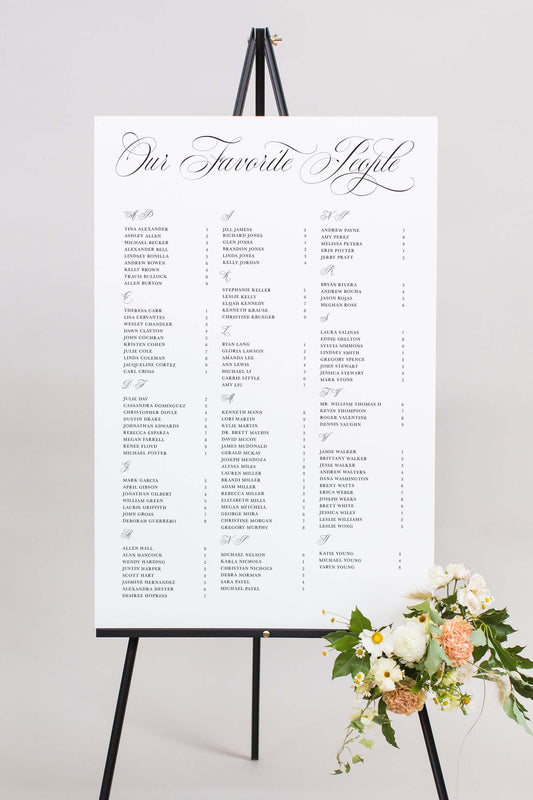 Our Favorite People
A B
TINA ALEXANDER 1
ASHLEY ALLEN 2
MICHAEL BECKER 3
ALEXANDER BELL 4
LINDSEY BONILLA 5
ANDREW BOWEN 6
KELLY BROWN 4
TRAVIS BULLOCK 8
ALLEN BURTON 9
C
THERESA CARR 1
LISA CERVANTES 2
WESLEY CHANDLER 3
DAWN CLAYTON 4
JOHN COCHRAN 5
KRISTEN COHEN 6
JULIE COLE 7
LINDA COLEMAN 8
JACQUELINE CORTEZ 9
CARL CROSS 1
D F
JULIE DAY 2
CASSANDRA DOMINGUEZ 3
CHRISTOPHER DOYLE 4
DUSTIN DRAKE 5
JOHNATHAN EDWARDS 6
REBECCA ESPARZA 7
MEGAN FARRELL 8
RENEE FLOYD 9
MICHAEL FOSTER 1
G
MARK GARCIA 2
APRIL GIBSON 3
JONATHAN GILBERT 4
WILLIAM GREEN 5
LAURIE GRIFFITH 6
JOHN GROSS 7
DEBORAH GUERRERO 8
H
ALLEN HALL 9
ALAN HANCOCK 1
WENDY HARDING 2
JUSTIN HARPER 3
SCOTT HART 4
JASMINE HERNANDEZ 5
ALEXANDRA HESTER 6
DESIREE HOPKISS 7
J
JILL JAMESS
RICHARD JONES 9
GLEN JONES 1
BRANDON JONES 2
LINDA JONES 3
KELLY JORDAN 4
K
STEPHANIE KELLER 5
LESLIE KELLY 6
ELIJAH KENNEDY 7
KENNETH KRAUSE 8
CHRISTINE KRUEGER 9
L
RYAN LANG 1
GLORIA LAWSON 2
AMANDA LEE 3
ANN LEWIS 4
MICHAEL LI 5
CARRIE LITTLE 6
AMY LIU 7
M
KENNETH MANN 8
LORI MARTIN 9
KYLIE MARTIN 1
DR. BRETT MATHIS 2
DAVID MCCOY 3
JAMES MCDONALD 4
GERALD MCKAY 5
JOSEPH MENDOZA 7
ALYSSA MILES 8
LAUREN MILLER
BRANDI MILLER 1
ADAM MILLER 2
REBECCA MILLER 3
ELIZABETH MILLS 4
MEGAN MITCHELL 5
GEORGE MORA 6
CHRISTINE MORGAN 7
GREGORY MURPHY 8
N
MICHAEL NELSON 9
KARLA NICHOLS 1
CHRISTIAN NICHOLS 2
DEBRA NORMAN 3
SARA PATEL 4
MICHAEL PATEL 5
N P
ANDREW PAYNE 7
AMY PEREZ 8
MELISSA PETERS 9
ERIN POTTER 1
JERRY PRATT 2
R
BRYAN RIVERA 3
ANDREW ROCHA 4
JASON ROJAS 5
MEGHAN ROSE 6
S
LAURA SALINAS 7
EDDIE SHELTON 8
SYLVIA SIMMONS 9
LINDSEY SMITH 1
GREGORY SPENCE 2
JOHN STEWART 3
JESSICA STEWART 4
MARK STONE 5
T V
MR. WILLIAM THOMAS II 6
KEVIN THOMPSON 7
ROGER VALENTINE 8
DENNIS VAUGHN 9
W
JAMIE WALKER 1
BRITTANY WALKER 2
JESSE WALKER 3
ANDREW WALTERS 4
DANA WASHINGTON 5
BRENT WATTS 6
ERICA WEBER 7
JOSEPH WEEKS 8
BRETT WHITE 9
JESSICA WILEY 1
LESLIE WILLIAMS 2
LESLIE WONG 3
Y
KATIE YOUNG 4
MICHAEL YOUNG 4
TARYN YOUNG 6